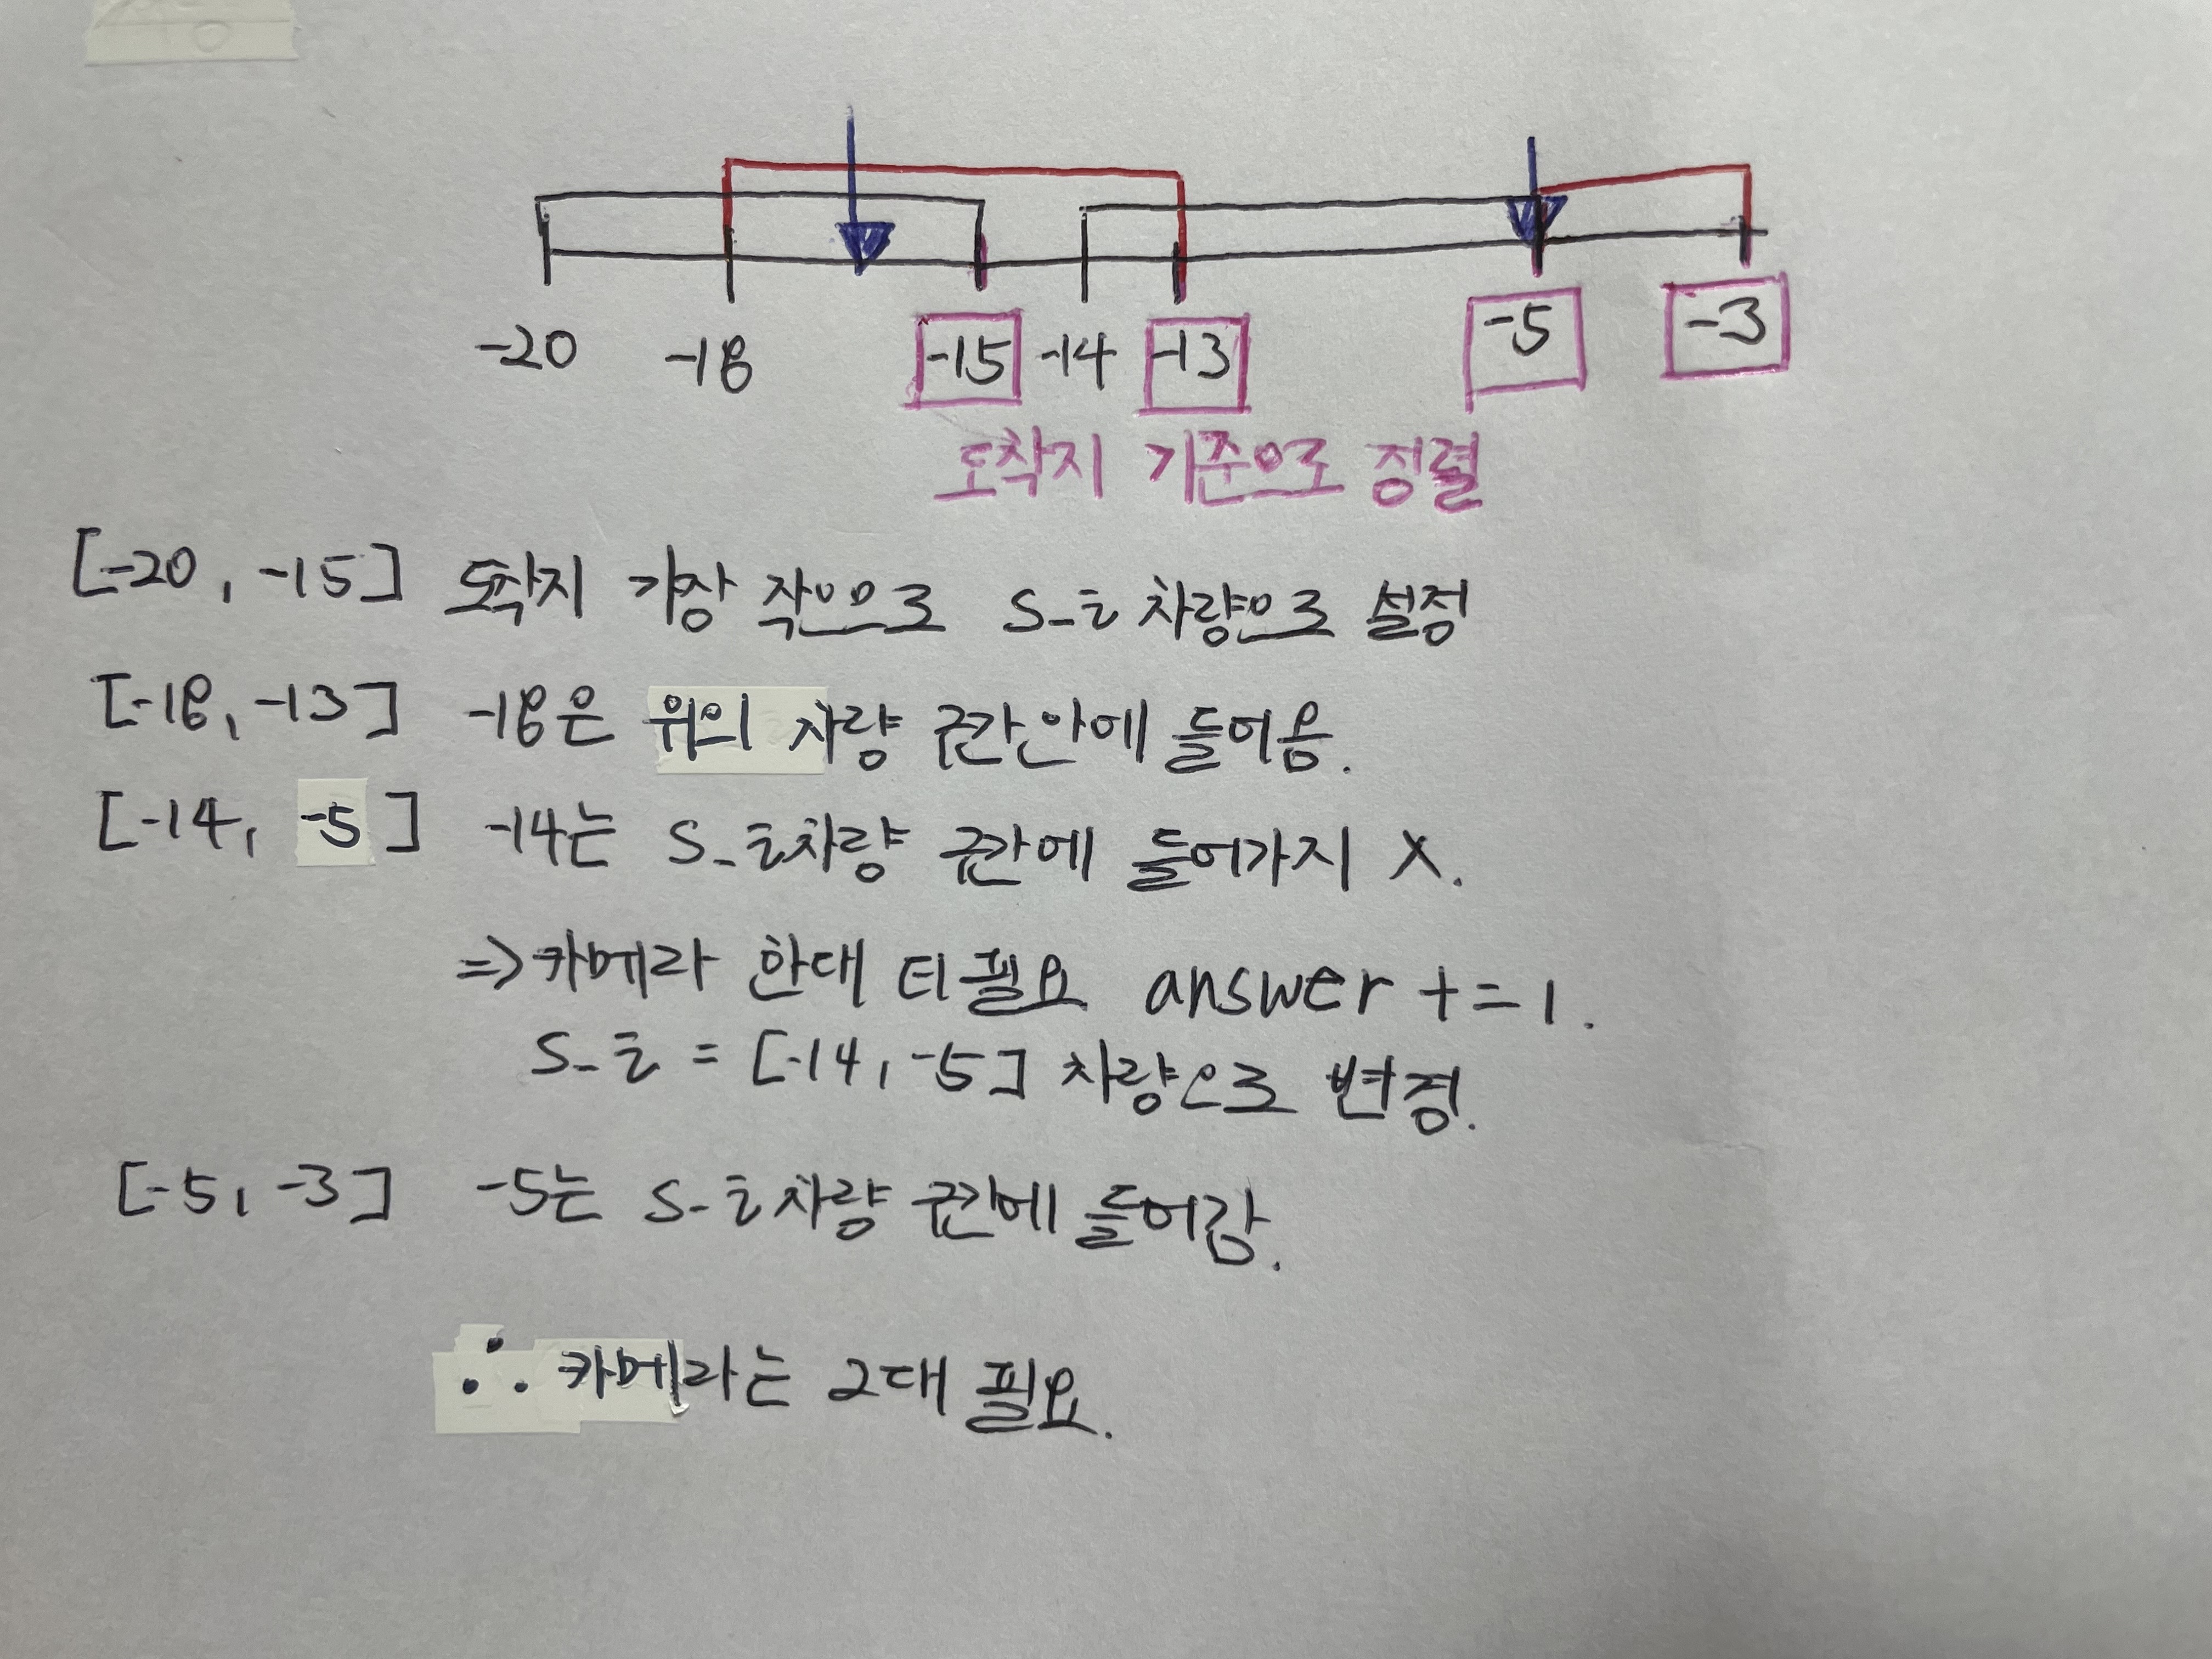 -20 -18 -15 -14 -13 -5 -3
도착지 기준으로 정렬
[-20, -15] 도착지 가장 작으므로 s_i 차량으로 설정
[-18, -13] -18은 위의 차량 구간안에 들어옴.
[-14, -5] -14는 s_i차량 구간에 들어가지 X.
=> 카메라 한대 더필요 answer += 1.
s_i = [-14, -5] 차량으로 변경.
[-5, -3] -5는 s_i차량 구간에 들어감.
∴ 카메라는 2대 필요.